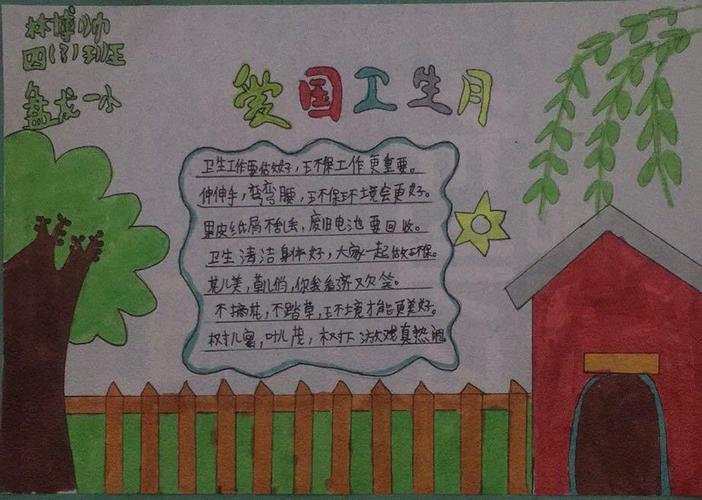 林博帅
四(3)班
盘龙一小
爱国卫生月
卫生工作要做好，环保工作更重要。
伸伸手，弯弯腰，环保环境会更好。
果皮纸屑不乱丢，废旧电池要回收。
卫生清洁身体好，大家一起做环保。
花儿美，草儿俏，你我
不摘花，不踏草，环境才能更美好。
树儿密，叶儿茂，树下游戏真热闹